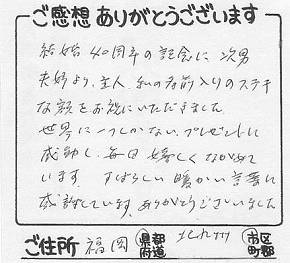 ご感想ありがとうございます
結婚40周年の記念に次男
夫婦より、主人、私の名前入りのステキ
な額をお祝にいただきました
世界に一つしかない、プレゼントに
感動し、毎日嬉しくながめて
います。すばらしい暖かい言葉に
感謝しています。ありがとうございました
ご住所 福岡 都道府県 北九州 市区町郡